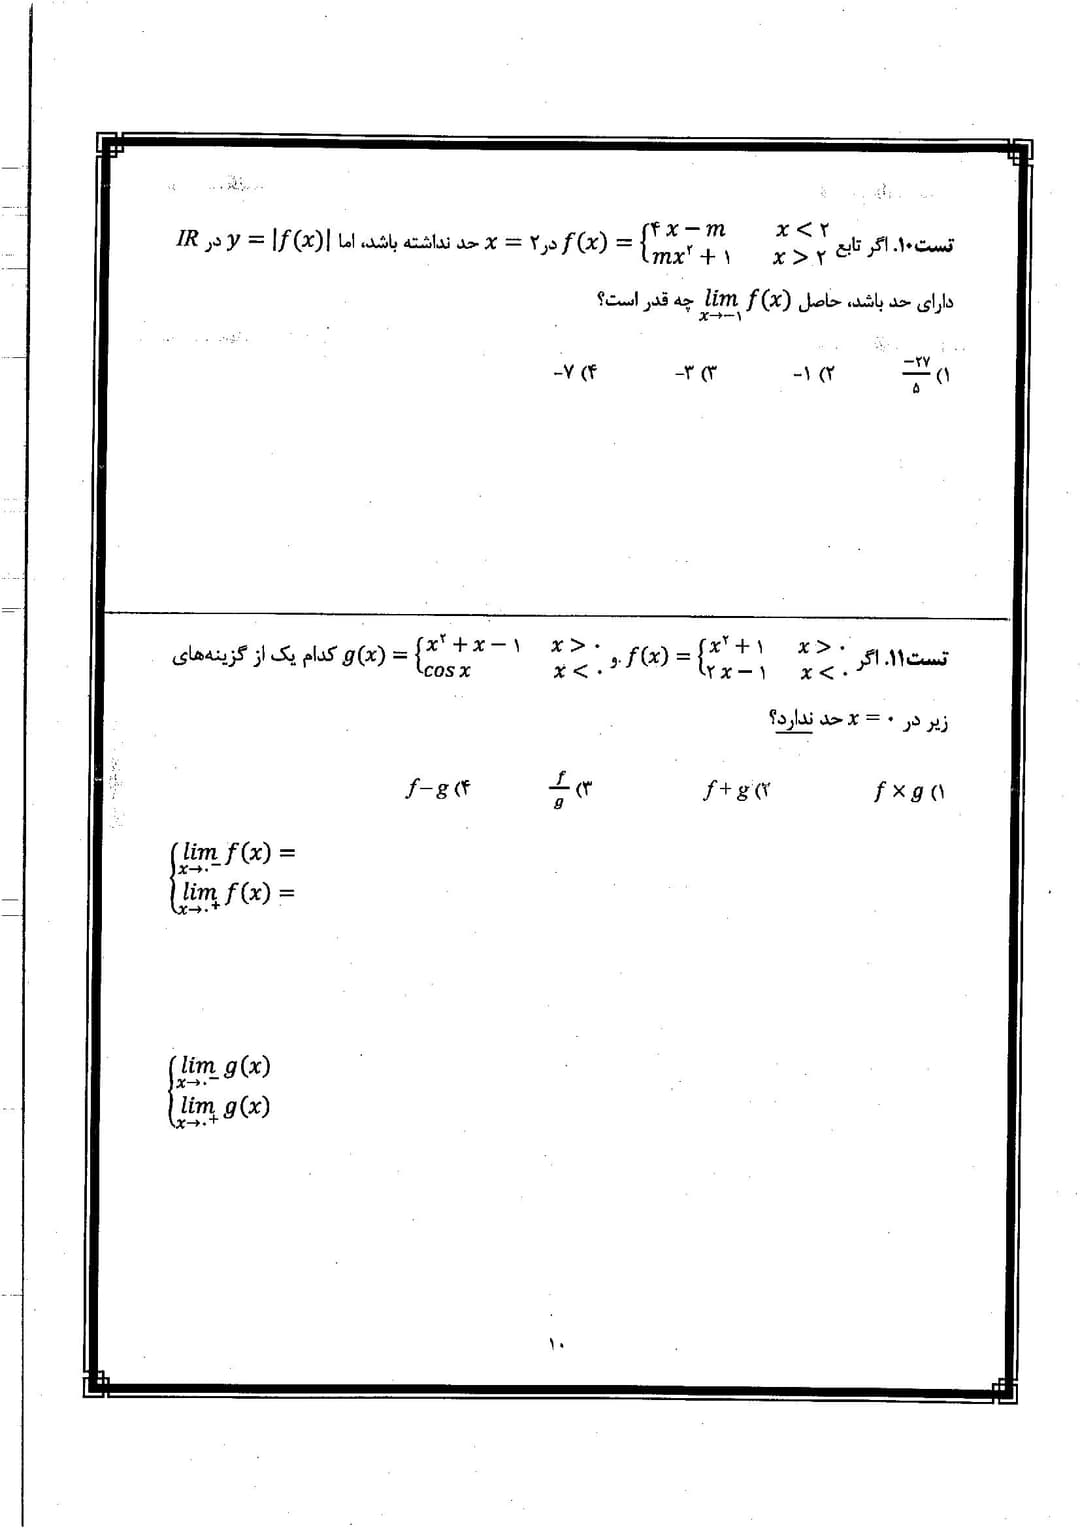 تست۱۰. اگر تابع f(x) = {۴x − m   x < ۲ ; mx² + ۱   x > ۲ در x = ۲ حد نداشته باشد، اما y = |f(x)| در IR
دارای حد باشد، حاصل lim f(x) x→−۱ چه قدر است؟
۱) −۲۷/۵   ۲) −۱   ۳) −۳   ۴) −۷
تست۱۱. اگر f(x) = {x² + ۱   x > ۰ ; ۲x − ۱   x < ۰ و g(x) = {x² + x − ۱   x > ۰ ; cos x   x < ۰ کدام یک از گزینه‌های
زیر در x = ۰ حد ندارد؟
۱) f × g   ۲) f + g   ۳) f/g   ۴) f − g
lim f(x) = x→۰⁻
lim f(x) = x→۰⁺
lim g(x) x→۰⁻
lim g(x) x→۰⁺
۱۰